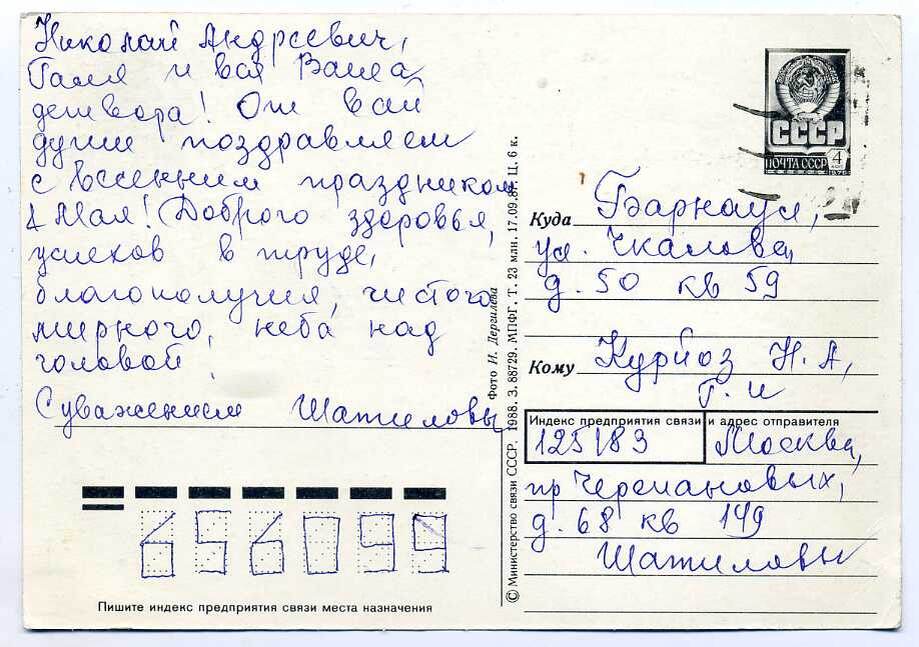 Николай Андреевич,
Галя и вся Ваша
детвора! От всей
души поздравляем
с весенним праздником
1 Мая! Доброго здоровья,
успехов в труде,
благополучия, чистого
мирного, неба над
головой.
С уважением Шатиловы
656099
Пишите индекс предприятия связи места назначения
© Министерство связи СССР. 1988. З. 88729. МПФГ. Т. 23 млн. 17.09.87. Ц. 6 к.
Фото Н. Дергилева
СССР
ПОЧТА СССР 4
1976
Куда Барнаул,
ул. Чкалова,
д. 50 кв 59
Кому Курйоз Н. А,
Г. и
Индекс предприятия связи и адрес отправителя
125183 Москва,
пр Черепановых,
д. 68 кв 149
Шатиловы